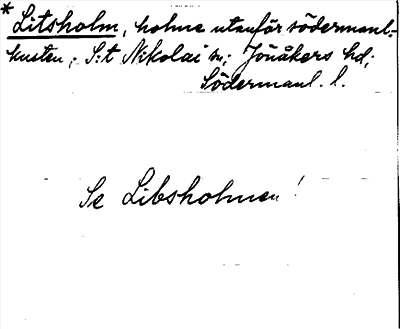 * Litsholm, holme utanför södermanl.-
kusten, S:t Nikolai sn; Jönåkers hd;
Södermanl. l.
Se Libsholmen!